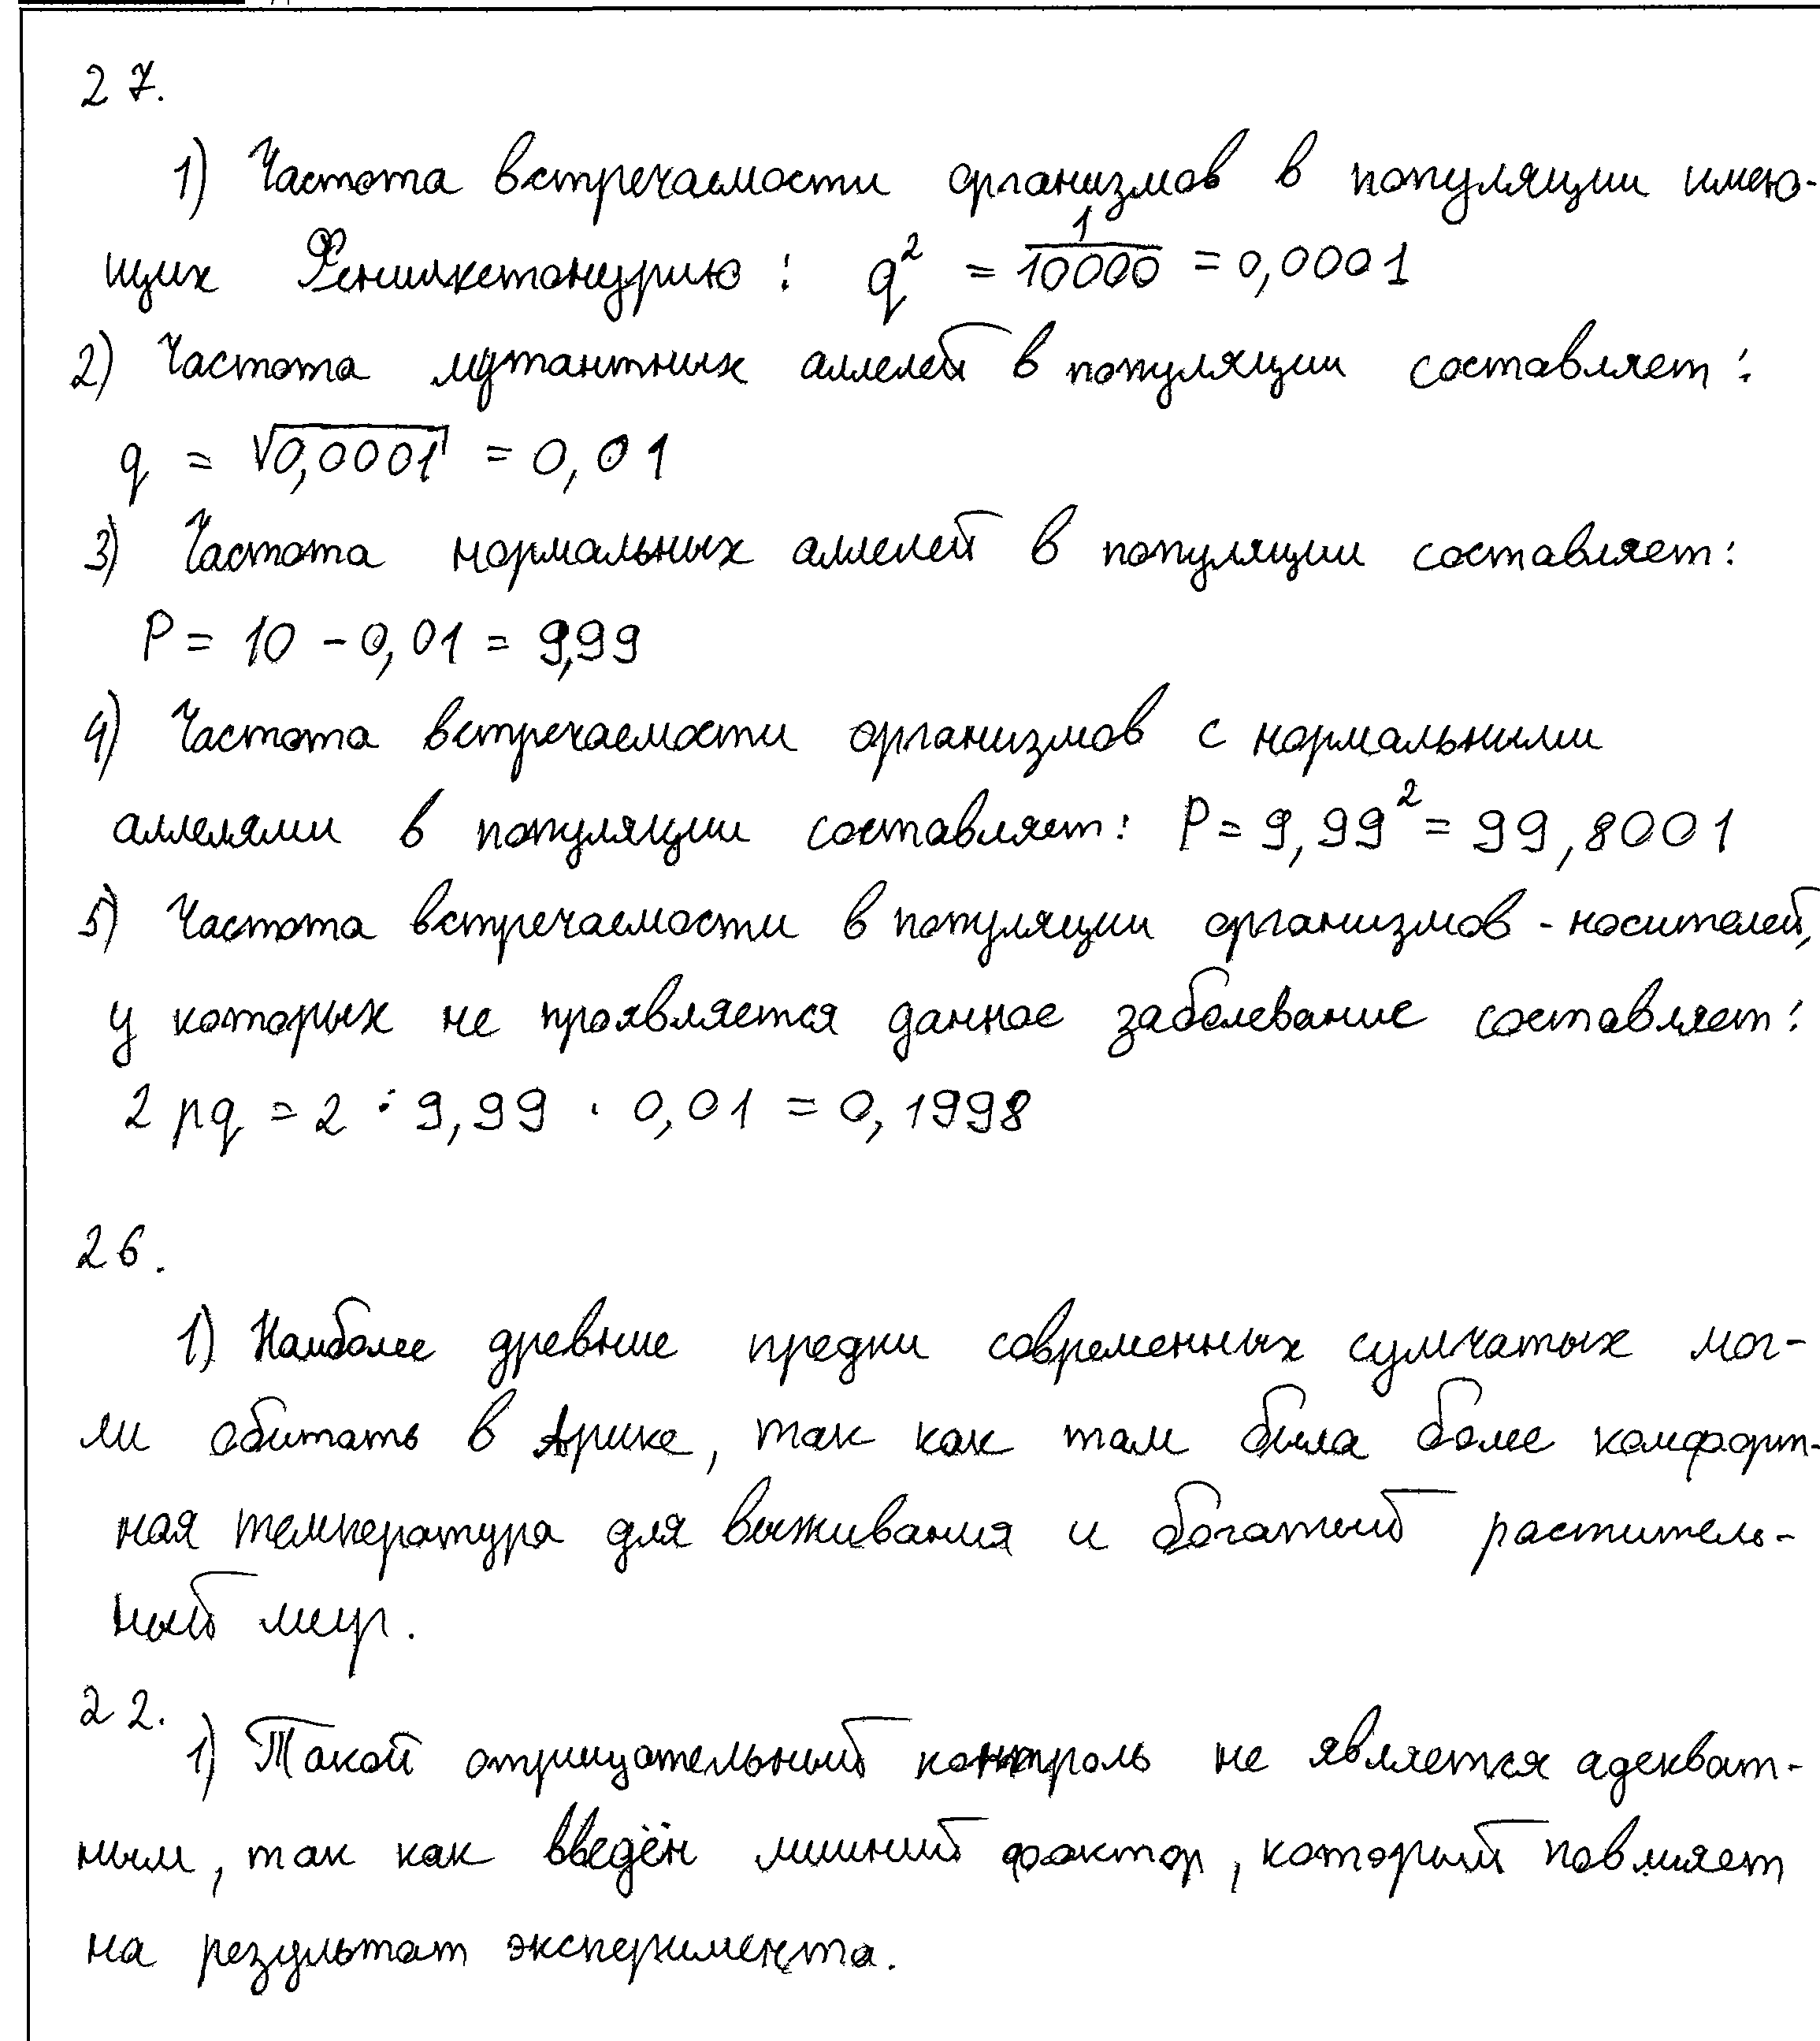 27.
1) Частота встречаемости организмов в популяции имею-
щих Фенилкетонурию: q² = 1/10000 = 0,0001
2) Частота мутантных аллелей в популяции составляет:
q = √0,0001 = 0,01
3) Частота нормальных аллелей в популяции составляет:
P = 10 - 0,01 = 9,99
4) Частота встречаемости организмов с нормальными
аллелями в популяции составляет: P = 9,99² = 99,8001
5) Частота встречаемости в популяции организмов - носителей,
у которых не проявляется данное заболевание составляет:
2pq = 2 · 9,99 · 0,01 = 0,1998
26.
1) Наиболее древние предки современных сумчатых мог-
ли обитать в Арике, так как там была более комфорт-
ная температура для выживания и богатый раститель-
ный мир.
22.
1) Такой отрицательный контроль не является адекват-
ным, так как введён лишний фактор, который повлияет
на результат эксперимента.